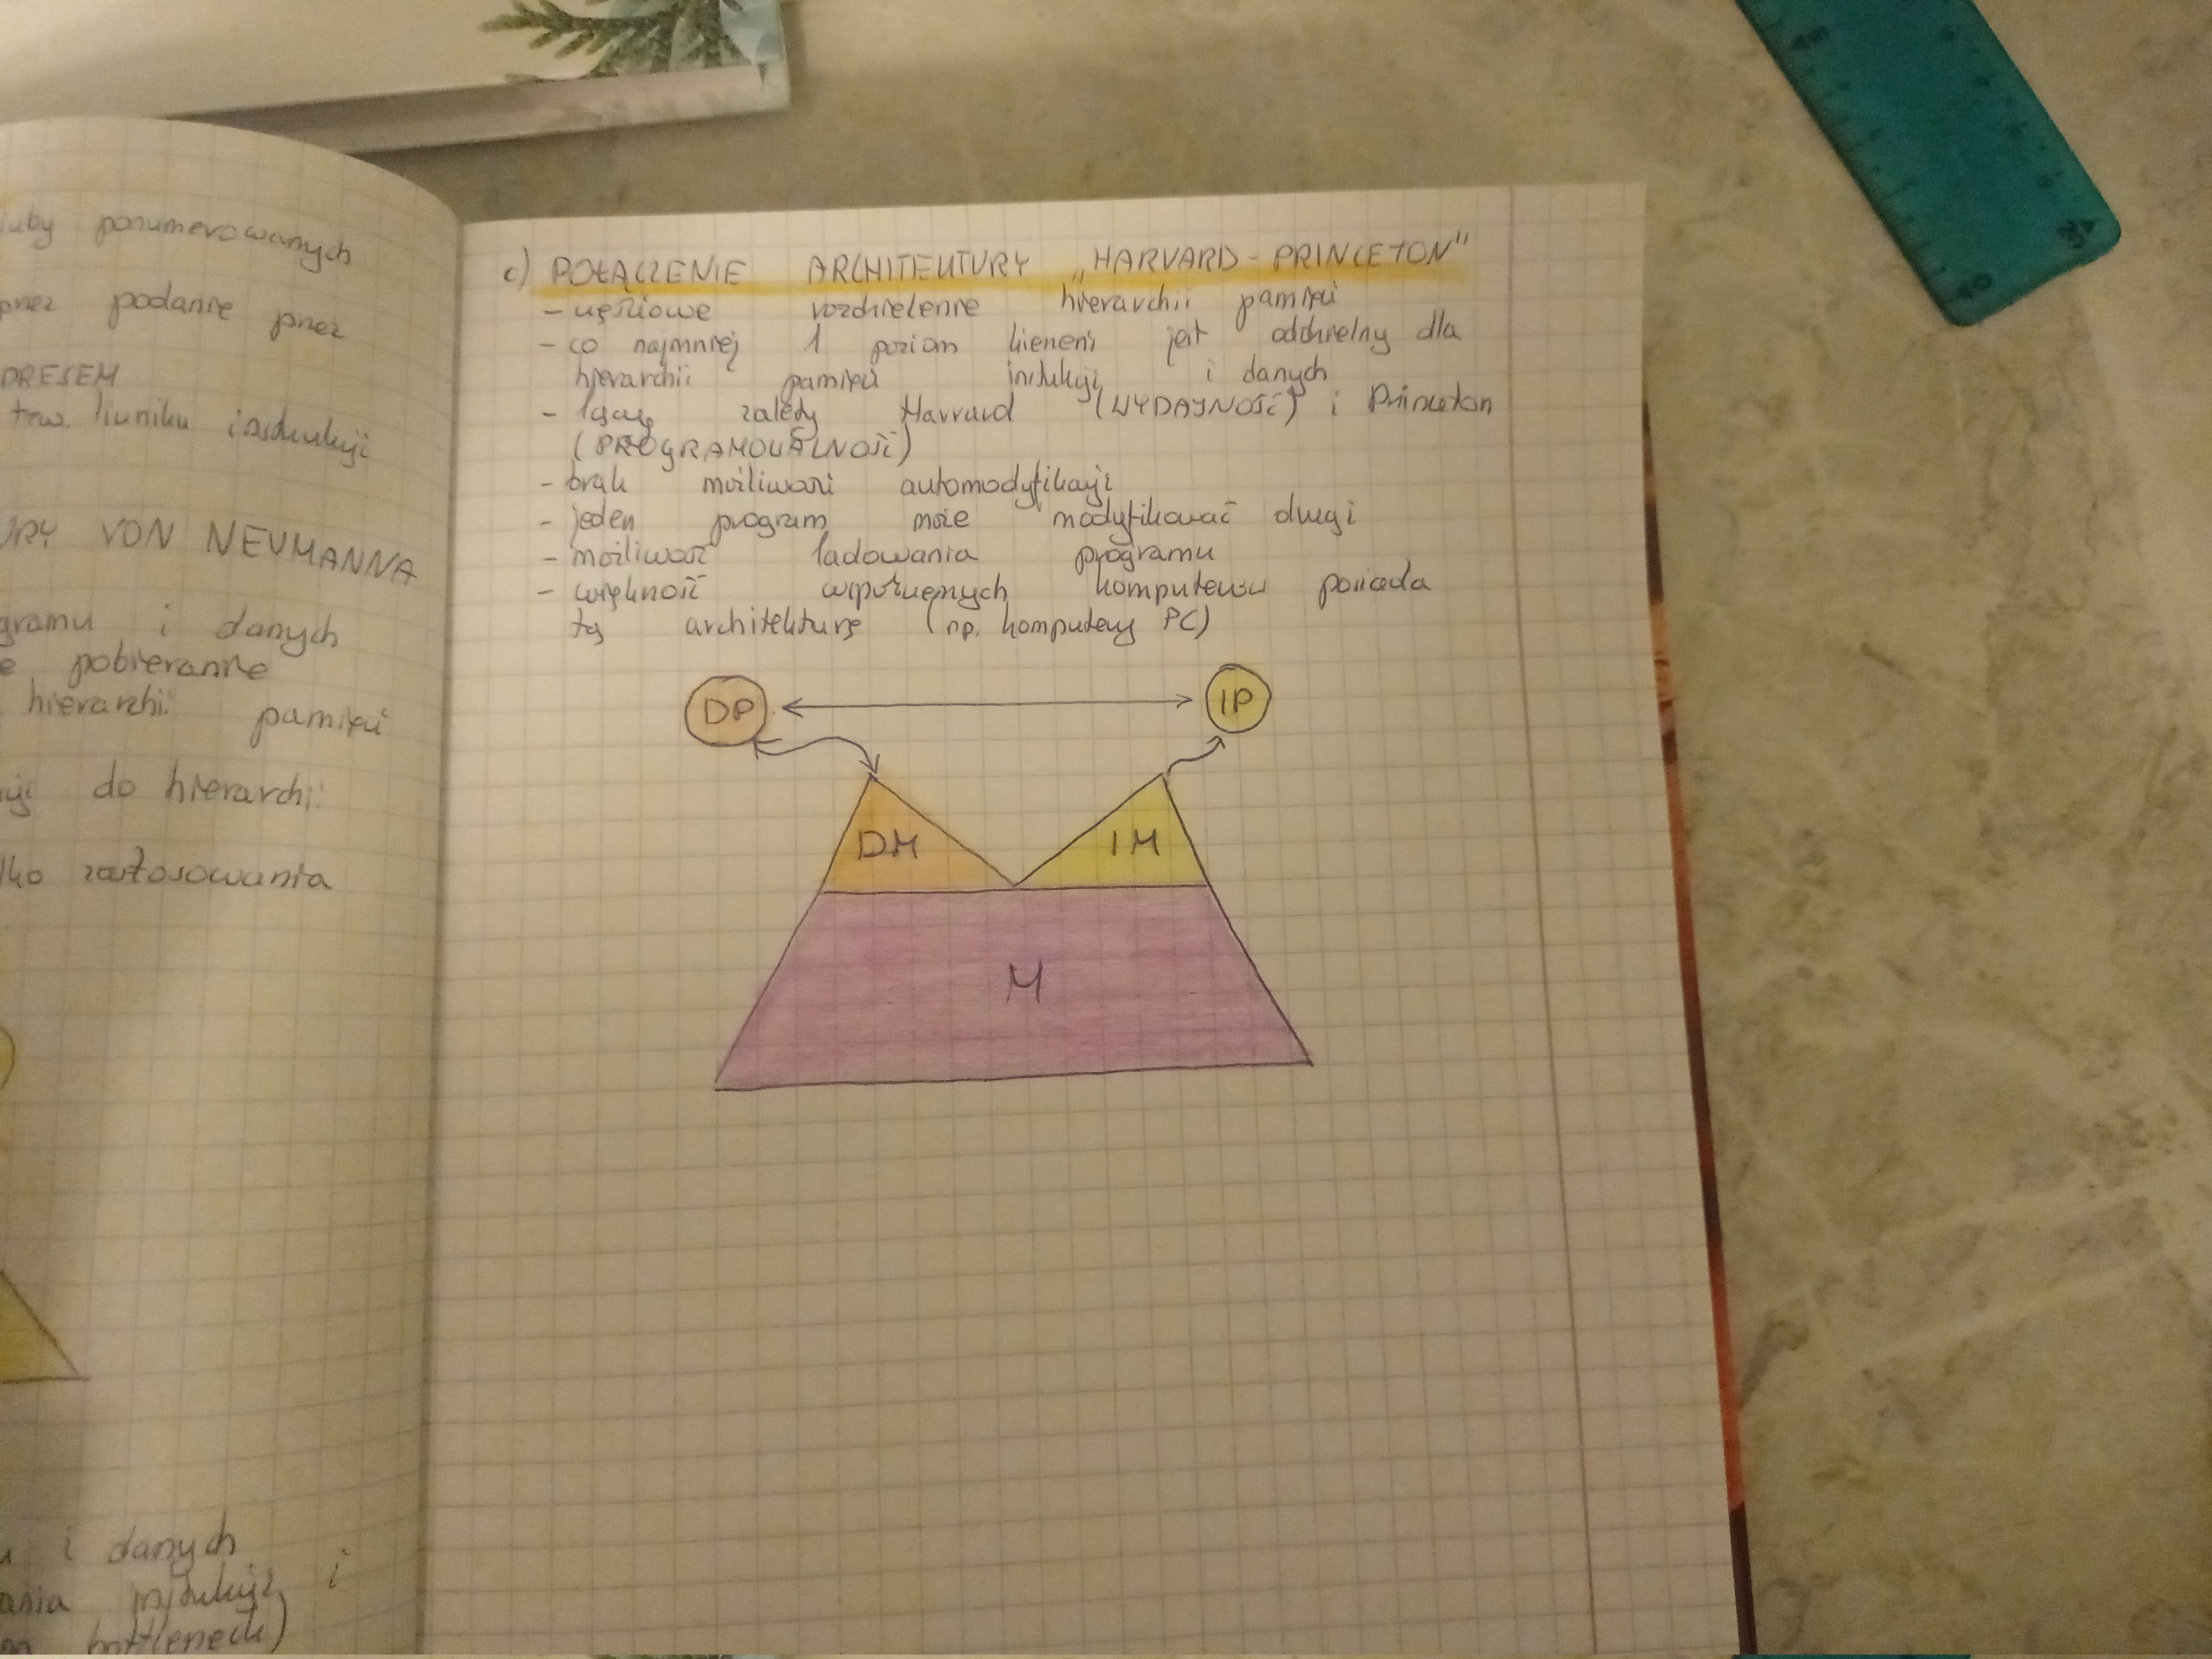 ponumerowanych
podanie przez
tzw. liczniku instrukcji
VON NEUMANNA
i danych
pobieranie
hierarchii pamięci
do hierarchii
zastosowania
i danych
i
c) POŁĄCZENIE ARCHITEKTURY „HARVARD - PRINCETON”
- częściowe rozdzielenie hierarchii pamięci
- co najmniej 1 poziom hierarchii jest oddzielny dla
hierarchii pamięci instrukcji i danych
- łączy zalety Harvard (WYDAJNOŚĆ) i Princeton
(PROGRAMOWALNOŚĆ)
- brak możliwości automodyfikacji
- jeden program może modyfikować drugi
- możliwość ładowania programu
- większość współczesnych komputerów posiada
tą architekturę (np. komputery PC)
DP
IP
DM
IM
M